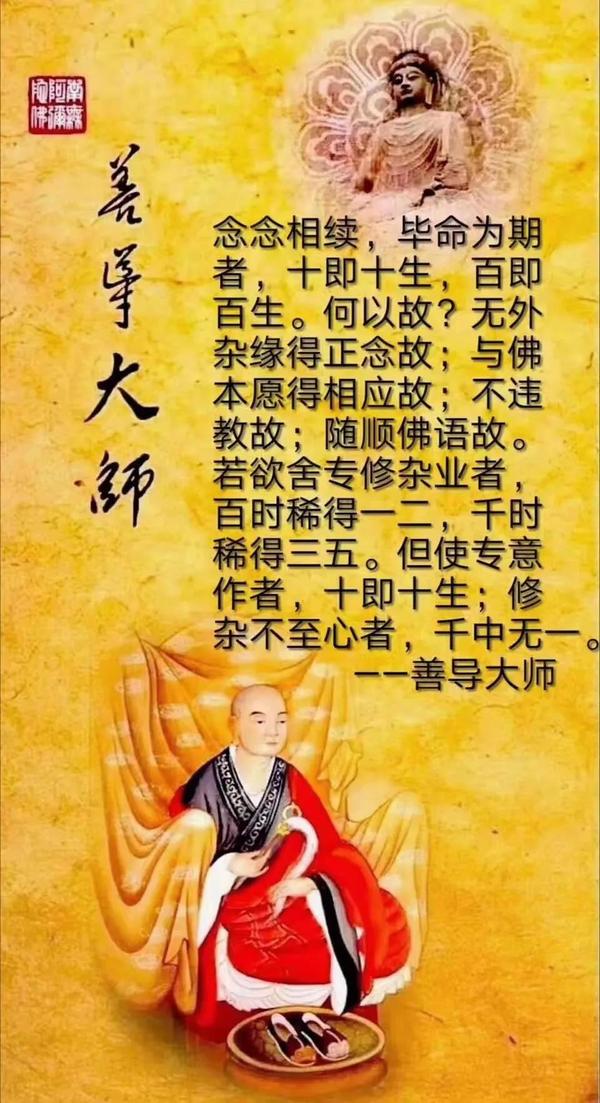 南無
阿彌
陀佛
善導大師
念念相续，毕命为期
者，十即十生，百即
百生。何以故？无外
杂缘得正念故；与佛
本愿得相应故；不违
教故；随顺佛语故。
若欲舍专修杂业者，
百时稀得一二，千时
稀得三五。但使专意
作者，十即十生；修
杂不至心者，千中无一。
——善导大师